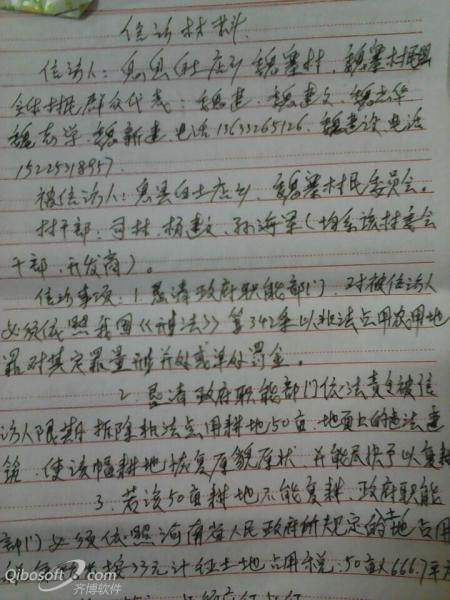 信访材料
信访人：息县白土店乡魏寨村、魏寨村民组
全体村民群众代表：魏建、魏建文、魏云华
魏志学、魏新建、电话13633265126、魏建设电话
15225318957.
被信访人：息县白土店乡、魏寨村民委员会。
村干部：司林、杨建文、孙海军（均系该村委会
干部、开发商）。
信访事项：1.恳请政府职能部门，对被信访人
必须依照我国《刑法》第342条以非法占用农用地
罪对其定罪量刑并处或单处罚金。
2.恳请政府职能部门依法责令被信
访人限期拆除非法占用耕地50亩地面上的违法建
筑，使该幅耕地恢复原貌原状，并能尽快予以复耕
3.若该50亩耕地不能复耕，政府职能
部门必须依照河南省人民政府所规定的土地占用
33元计征土地占用税，50亩×666.7平方
Qibosoft.com
齐博软件